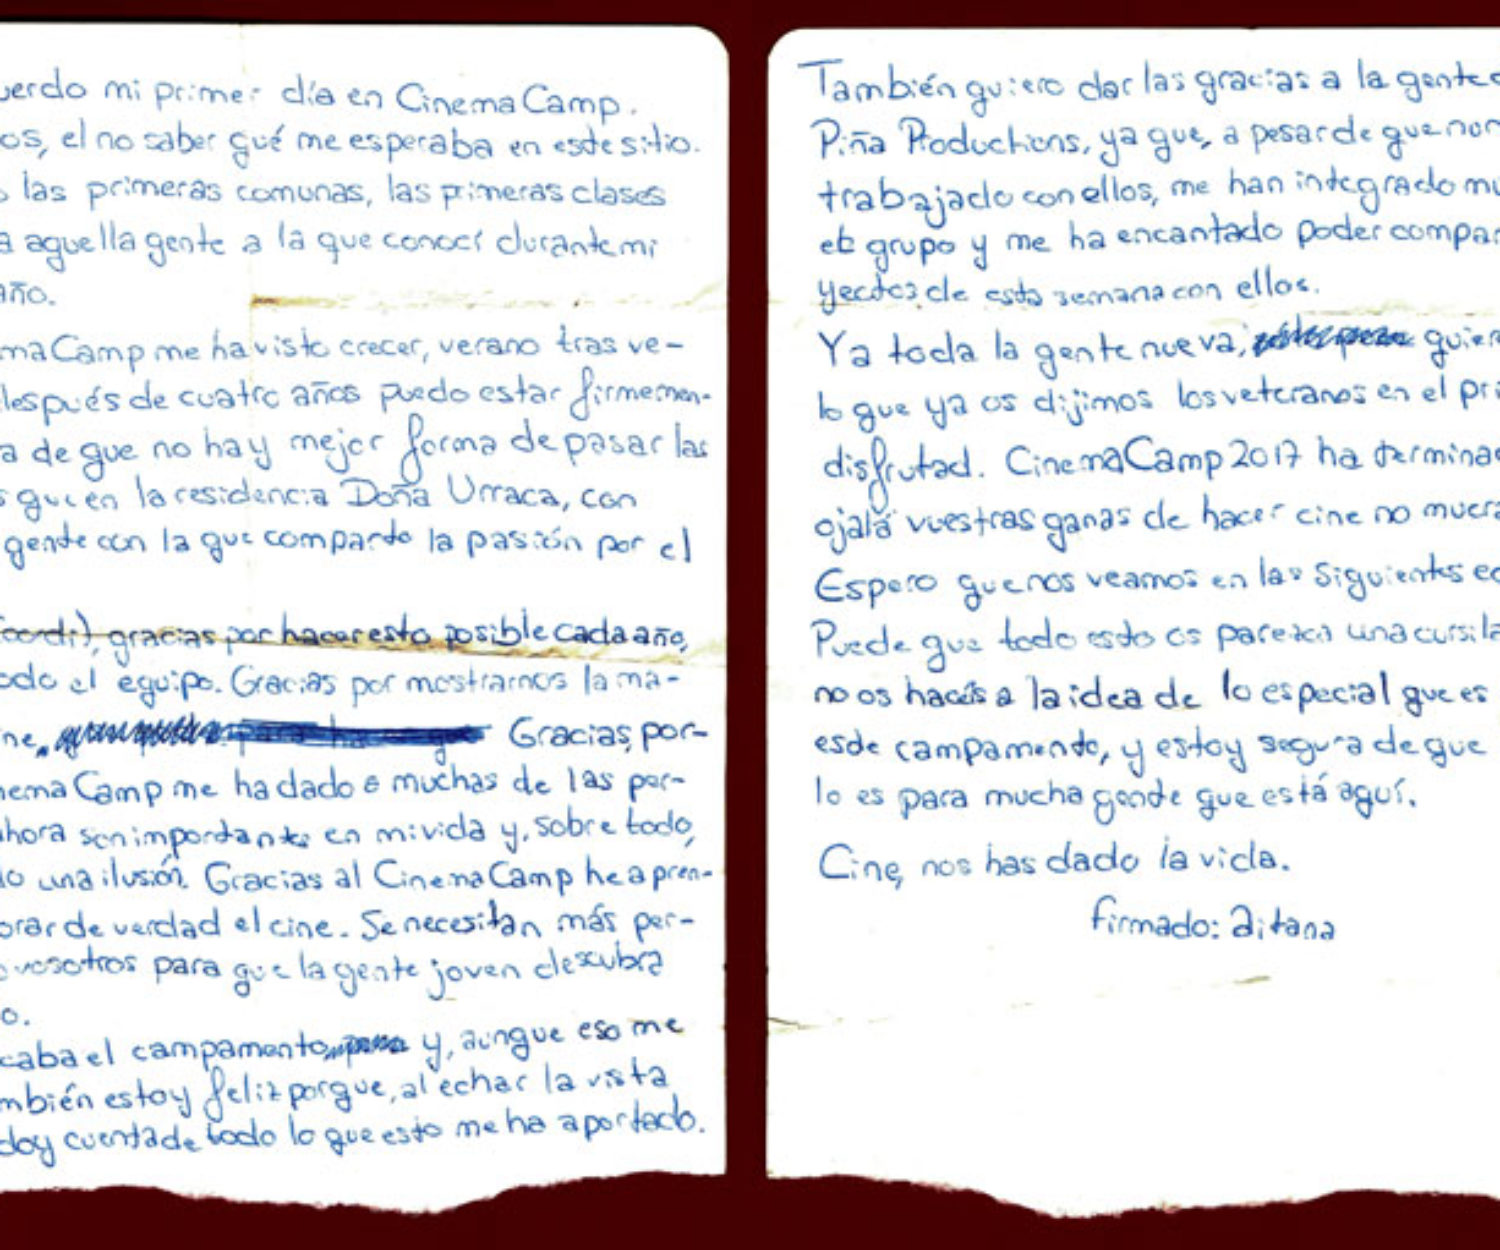 uerdo mi primer día en CinemaCamp.
os, el no saber qué me esperaba en este sitio.
o las primeras comunas, las primeras clases
a aquella gente a la que conocí durante mi
año.
maCamp me ha visto crecer, verano tras ve-
después de cuatro años puedo estar firmemen-
a de que no hay mejor forma de pasar las
s que en la residencia Doña Urraca, con
gente con la que comparto la pasión por el
Coordi), gracias por hacer esto posible cada año,
odo el equipo. Gracias por mostrarnos la ma-
ne, para que Gracias, por-
nemaCamp me ha dado a muchas de las per-
ahora son importantes en mi vida y, sobre todo,
do una ilusión. Gracias al CinemaCamp he apren-
orar de verdad el cine. Se necesitan más per-
o vosotros para que la gente joven descubra
o.
caba el campamento y, aunque eso me
mbién estoy feliz porque, al echar la vista
doy cuenta de todo lo que esto me ha aportado.
También quiero dar las gracias a la gente d
Piña Productions, ya que, a pesar de que no
trabajado con ellos, me han integrado mu
el grupo y me ha encantado poder compar
yectos de esta semana con ellos.
Y a toda la gente nueva, quier
lo que ya os dijimos los veteranos en el pri
disfrutad. CinemaCamp 2017 ha terminad
ojalá vuestras ganas de hacer cine no muera
Espero que nos veamos en las siguientes ed
Puede que todo esto os parezca una cursila
no os hacéis a la idea de lo especial que es
este campamento, y estoy segura de que
lo es para mucha gente que está aquí.
Cine, nos has dado la vida.
Firmado: Aitana